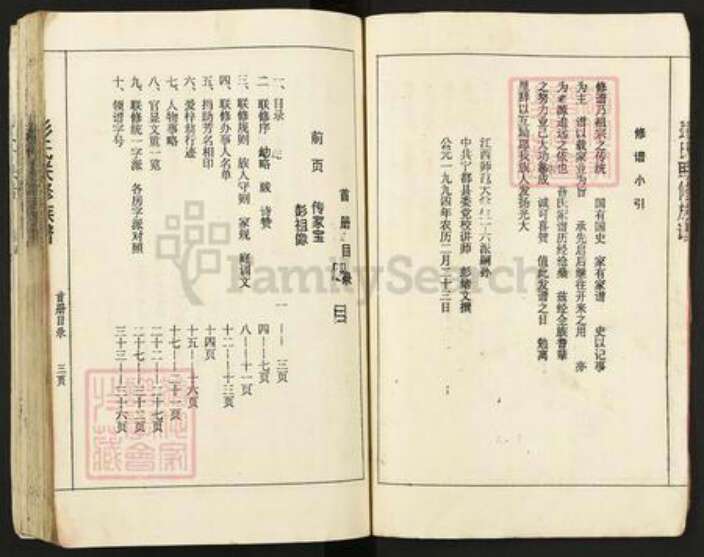 修谱小引
修谱乃祖宗之传统 国有国史 家有家谱 史以记事
为主 谱以载家业为旨 承先启后继往开来之用 亦
为木源追远之依也 彭氏家谱历经沧桑 兹经全族鲁辈
之努力业已大功告成 诚可喜贺 值此发谱之日 勉寓
星辞以互励愿我族人发扬光大
江西师范大学
中共宁都县委党校讲师 彭 文撰
公元一九九四年农历二月二十三日
首册目录
前页
传家宝
彭祖像
一、目录 一——三页
二、联修序 幼略 跋 诗赞 四——七页
三、联修规则 族人守则 家规 庭训文 八——十一页
四、联修办事人名单 十二——十三页
五、捐助芳名相印 十四页
六、爱梓懿行迹 十五——十六页
七、人物事略 十七——二十一页
八、官显文重一览 二十二——二十七页
九、联修统一字派 各房字派对照 二十七——三十二页
十、领谱字号 三十三——三十六页
首册目录 三页
彭氏联修族谱
FamilySearch